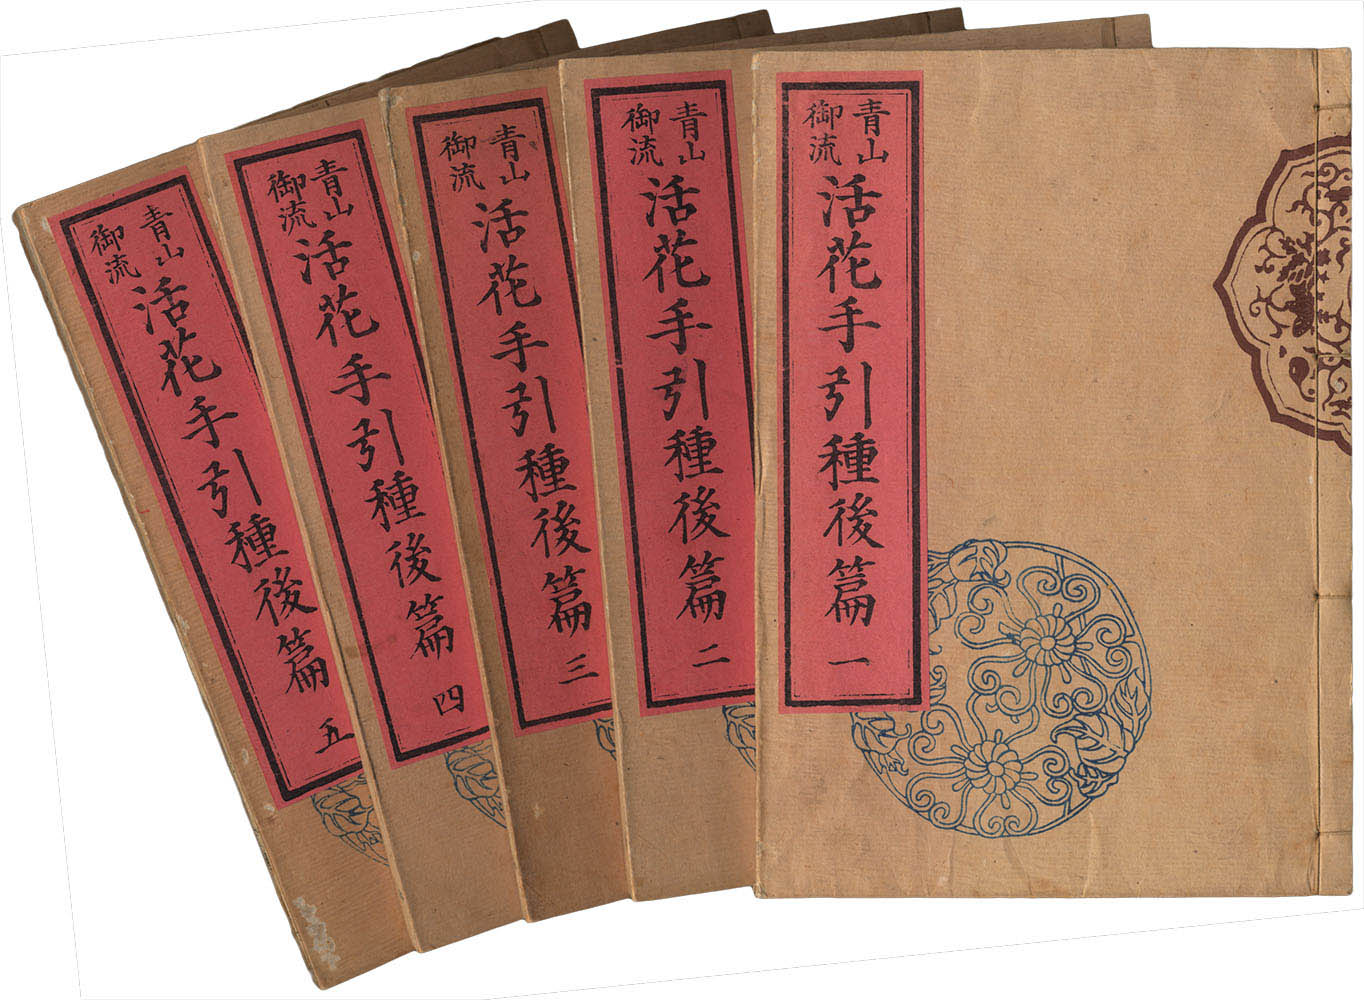 青山
御流
活花手引種後篇 一
青山
御流
活花手引種後篇 二
青山
御流
活花手引種後篇 三
青山
御流
活花手引種後篇 四
青山
御流
活花手引種後篇 五